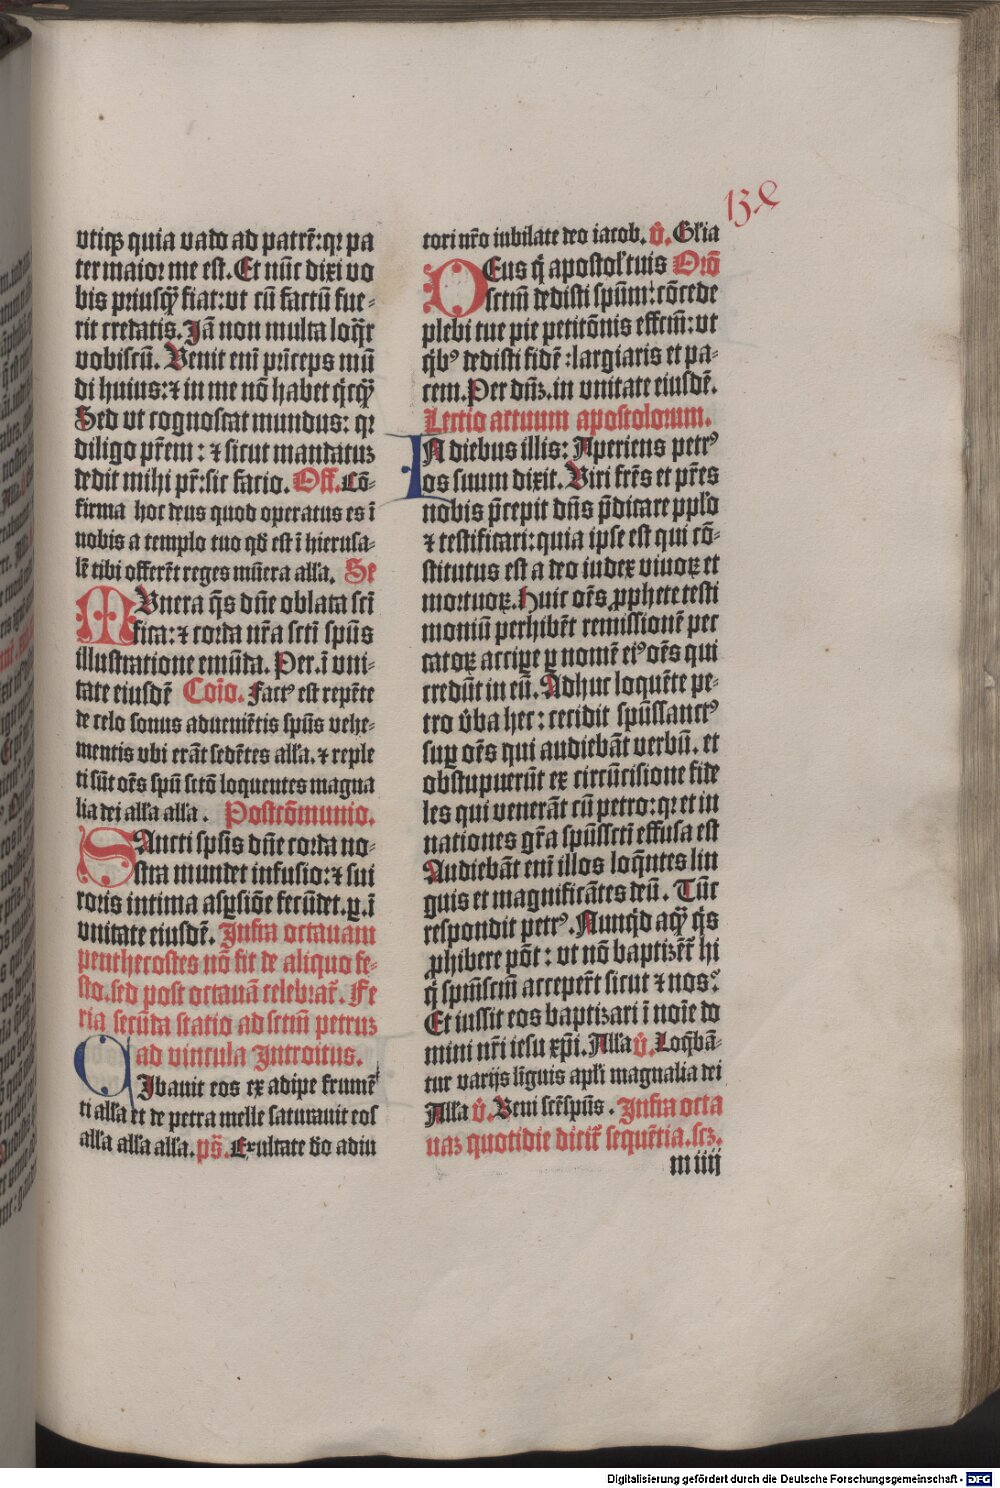 vtiqꝫ quia vado ad patrē: qꝛ pa
ter maior me est. Et nūc dixi vo
bis priusqͣꝫ fiat: vt cū factū fue-
rit credatis. Jā non multa loqͣr
vobiscū. Venit eni prīceps mū
di huius: ⁊ in me nō habet qͥcqͣꝫ
Sed vt cognoscat mundus: qꝛ
diligo pr̄em: ⁊ sicut mandatuꝫ
dedit mihi pr̄: sic facio. Off. Cō-
firma hoc deus quod operatus es ī
nobis a templo tuo qđ est ī hierusa-
lē tibi offerēt reges mūera alľa. Se
MVnera q̄s dn̄e oblata sctī
fica: ⁊ corda nr̄a sctī spūs
illustratione emūda. Per. ī vni-
tate eiusdē Coīo. Factꝰ est repēte
de celo sonus adueniētis spūs vehe-
mentis vbi erāt sedētes alľa. ⁊ reple
ti sūt oēs spū sctō loquentes magna
lia dei alľa alľa. Postcōmunio.
SAncti spūs dn̄e corda no-
stra mundet infusio: ⁊ sui
roris intima aspsiōe fecūdet. ꝑ. ī
vnitate eiusdē. Infra octauam
penthecostes nō fit de aliquo fe-
sto. sed post octauā celebrat̄. Fe
ria secūda statio ad sctm̄ petruꝫ
ad vincula Introitus.
CIbauit eos ex adipe frumē
ti alľa et de petra melle saturauit eos
alľa alľa alľa. ps̄. Exultate đo adiu
13.e
tori nr̄o iubilate deo iacob. v̄. Gľia
DEus q̄ apostoľ tuis Orō
sctm̄ dedisti spūm: cōcede
plebi tue pie petitōnis effcm̄: vt
qͥbꝰ dedisti fidē: largiaris et pa-
cem. Per dn̄ꝫ. in vnitate eiusdē.
Lectio actuum apostolorum.
IN diebus illis: Aperiens petrꝰ
os suum dixit. Viri fr̄es et pr̄es
nobis p̄cepit dn̄s p̄dicare ppľo
⁊ testificari: quia ipse est qui cō-
stitutus est a deo iudex viuoꝝ et
mortuoꝝ. Huic oēs ꝓphete testi
moniū perhibēt remissionē pec
catoꝝ accipe ꝑ nomē eiꝰ oēs qui
credūt in eū. Adhuc loquēte pe-
tro v̄ba hec: cecidit spūssanctꝰ
suꝑ oēs qui audiebāt verbū. et
obstupuerūt ex circūcisione fide
les qui venerāt cū petro: qꝛ et in
nationes gr̄a spūssctī effusa est
Audiebāt eni illos loqn̄tes lin
guis et magnificātes deū. Tūc
respondit petrꝰ. Nunqͥd aqͣꝫ qͥs
ꝓhibere pōt: vt nō baptizēt̄ hi
q̄ spm̄scm̄ accepert̄ sicut ⁊ nos?
Et iussit eos baptizari ī noīe do
mini nr̄i iesu xp̄i. Alľa v̄. Loqͣbā-
tur varijs līguis apľi magnalia dei
Alľa v̄. Veni sctēspūs. Infra octa
uaꝫ quotidie dicit̄ sequētia. scꝫ.
m iiij
Digitalisierung gefördert durch die Deutsche Forschungsgemeinschaft - DFG